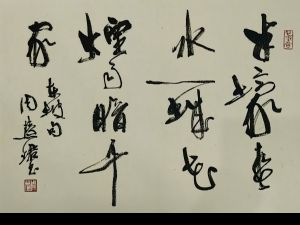 半壕春
水一城花
煙雨暗千
家
东坡句
周慧珺书